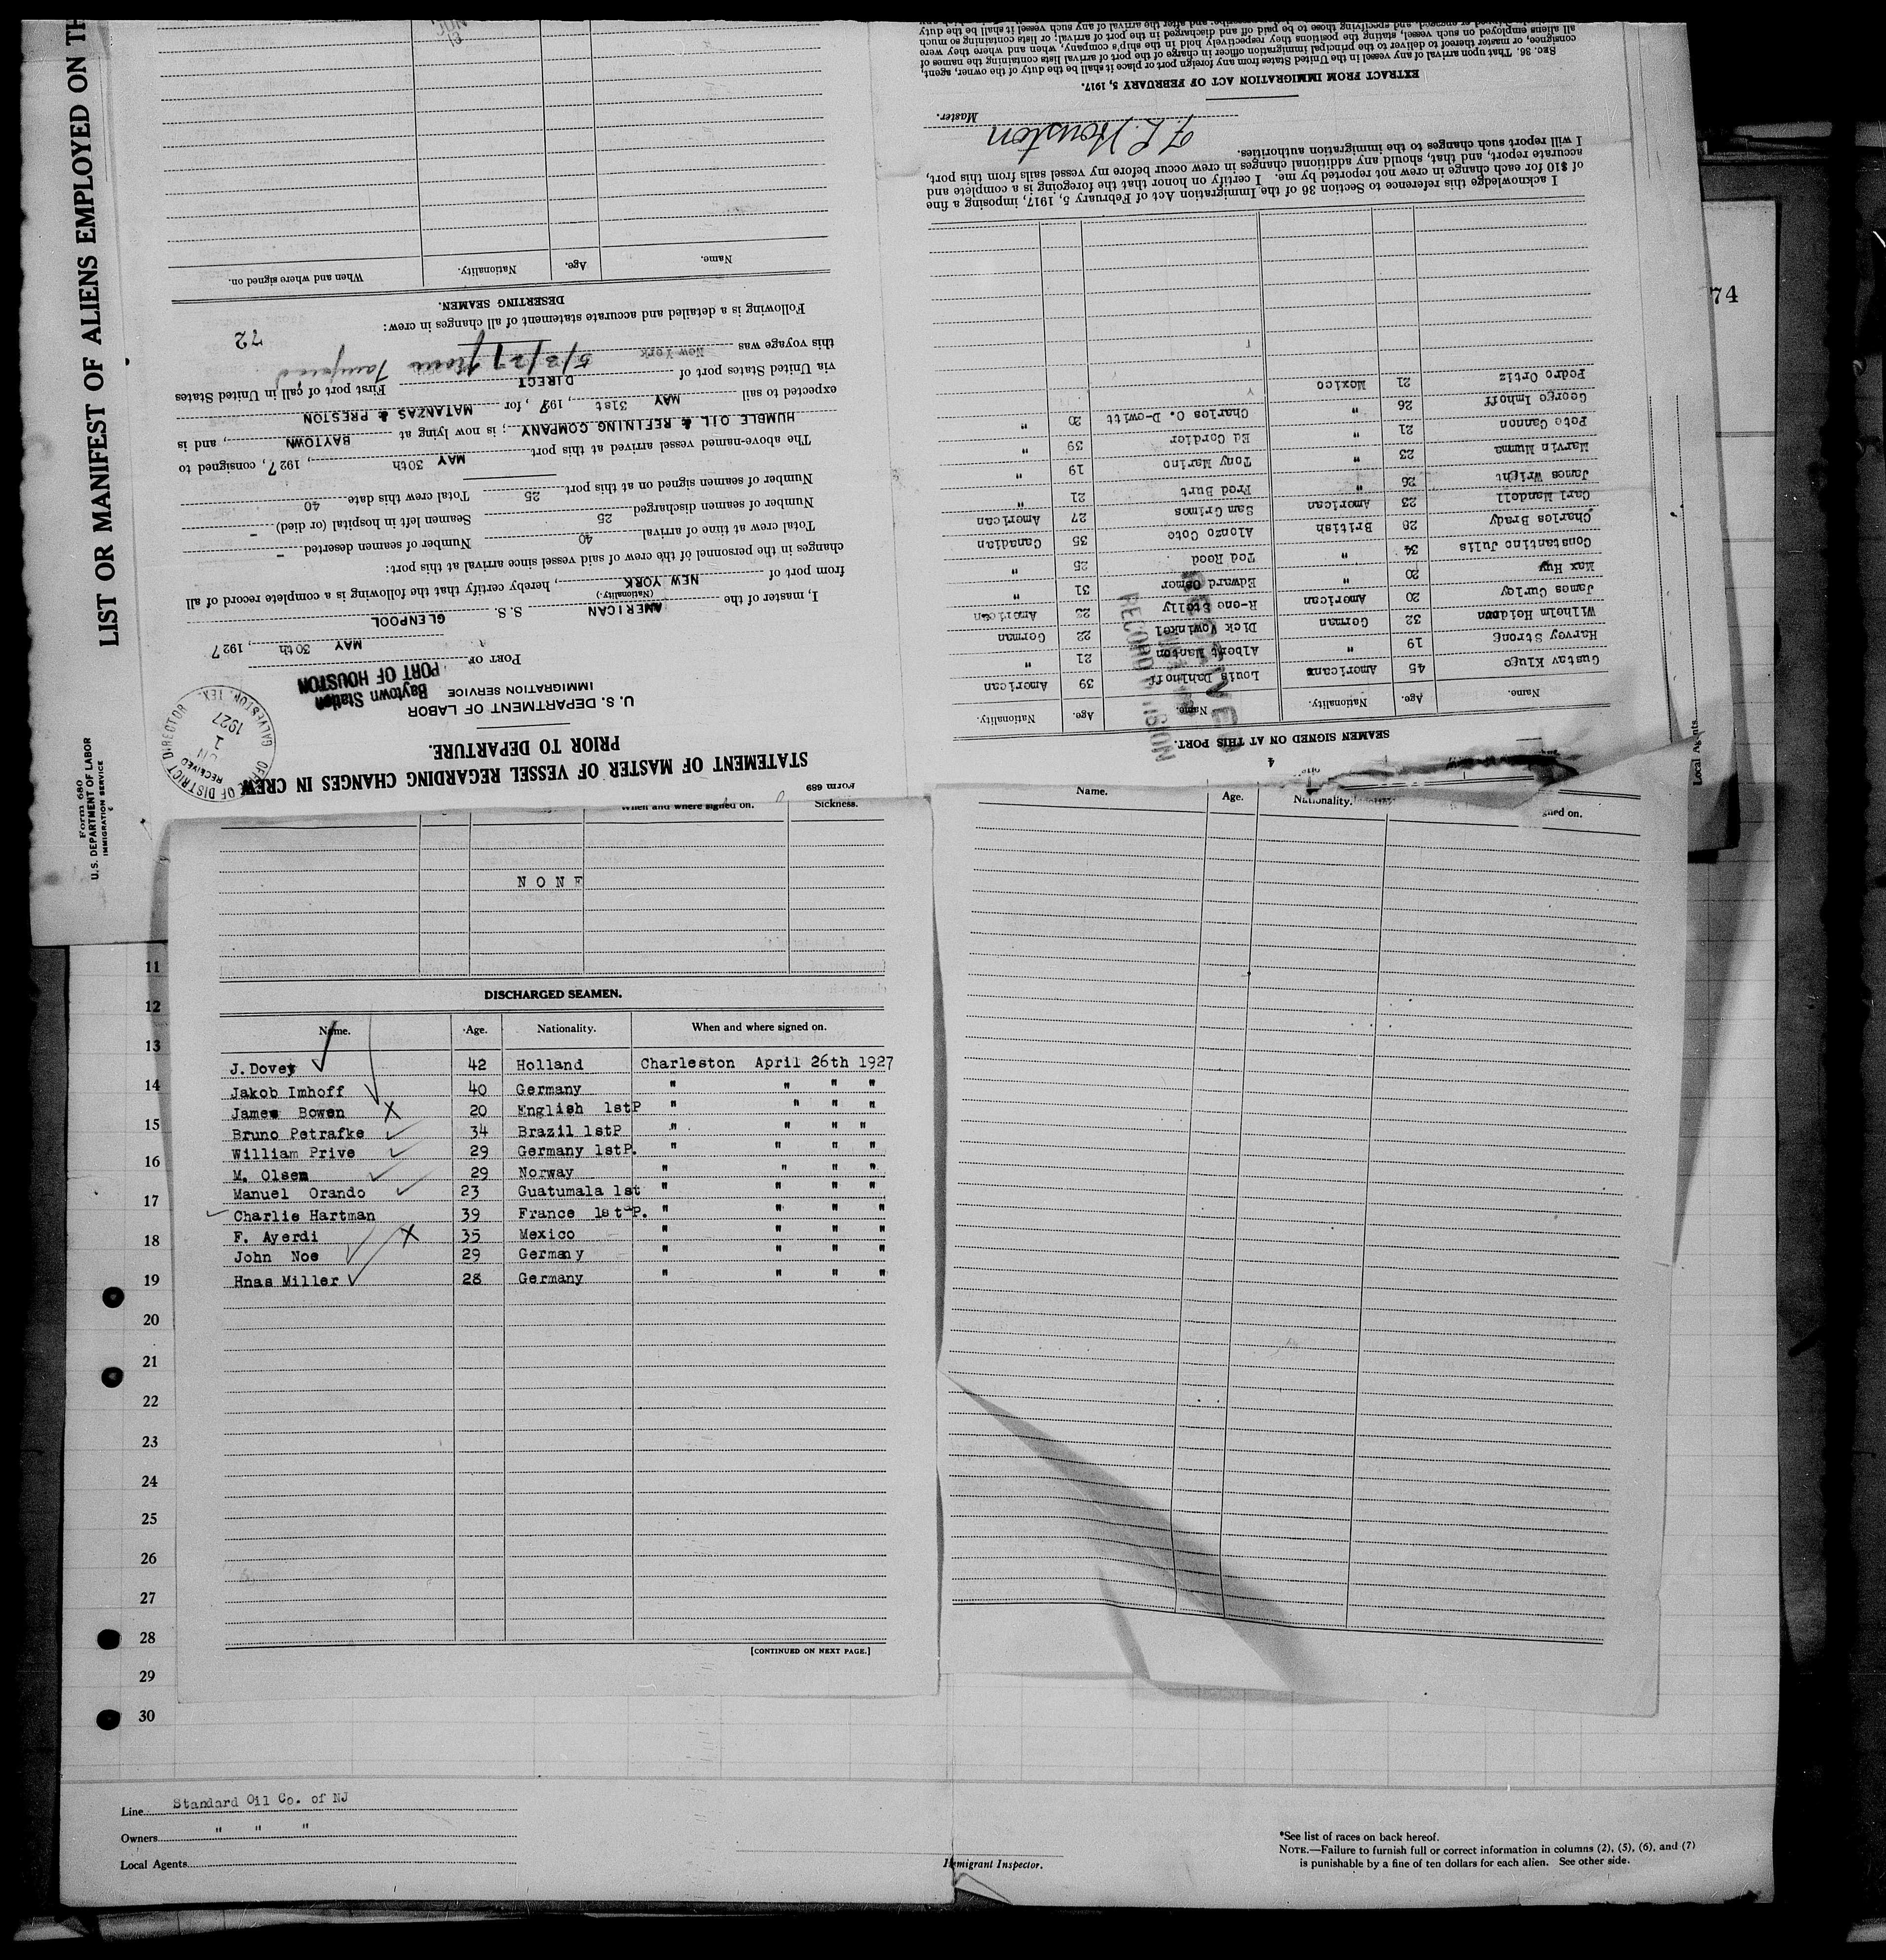 LIST OR MANIFEST OF ALIENS EMPLOYED ON TH
Form 680
U. S. DEPARTMENT OF LABOR
IMMIGRATION SERVICE
74
Form 689
STATEMENT OF MASTER OF VESSEL REGARDING CHANGES IN CREW
PRIOR TO DEPARTURE.
U. S. DEPARTMENT OF LABOR
IMMIGRATION SERVICE
Baytown Station
PORT OF HOUSTON
Port of
MAY 30th, 1927
OFFICE OF DISTRICT DIRECTOR
RECEIVED
JUN 1 1927
GALVESTON, TEX.
I, master of the AMERICAN S. S. GLENPOOL
(Nationality.)
from port of NEW YORK, hereby certify that the following is a complete record of all
changes in the personnel of the crew of said vessel since arrival at this port:
Total crew at time of arrival 40 Number of seamen deserted -
Number of seamen discharged 25 Seamen left in hospital (or died) -
Number of seamen signed on at this port 25 Total crew this date 40
The above-named vessel arrived at this port MAY 30th, 1927, consigned to
HUMBLE OIL & REFINING COMPANY; is now lying at BAYTOWN, and is
expected to sail MAY 31st, 1927, for MATANZAS & PRESTON
via United States port of DIRECT First port of call in United States
this voyage was New York 5/3/27 from Tampico
72
Following is a detailed and accurate statement of all changes in crew:
DESERTING SEAMEN.
Name. Age. Nationality. When and where signed on.
SEAMEN SIGNED ON AT THIS PORT.
4
Name. Age. Nationality. Name. Age. Nationality.
Gustav Kluge 45 Americans Louis Dahlhoff 39 American
Harvey Strong 19 " Albert Manton 21 "
Wilhelm Heidorn 32 German Dick Vowinkel 22 German
James Curley 20 American R-one Stelly 23 American
Max Huy 20 " Edward Osmer 31 "
Constantino Julis 34 " Ted Reed 25 "
Charles Brady 28 British Alonzo Cote 35 Canadian
Carl Mandell 23 American Sam Grimes 27 American
James Wright 26 " Fred Burt 21 "
Marvin Mumma 23 " Tony Marino 19 "
Pete Cannon 21 " Ed Cordier 39 "
George Imhoff 26 " Charles C. D-owitt 20 "
Pedro Ortiz 21 Mexico
I acknowledge this reference to Section 36 of the Immigration Act of February 5, 1917, imposing a fine
of $10 for each change in crew not reported by me. I certify on honor that the foregoing is a complete and
accurate report, and that, should any additional changes in crew occur before my vessel sails from this port,
I will report such changes to the immigration authorities.
F. L. Houston
Master.
EXTRACT FROM IMMIGRATION ACT OF FEBRUARY 5, 1917.
SEC. 36. That upon arrival of any vessel in the United States from any foreign port or place it shall be the duty of the owner, agent,
consignee, or master thereof to deliver to the principal immigration officer in charge of the port of arrival lists containing the names of
all aliens employed on such vessel, stating the positions they respectively hold in the ship's company, when and where they were
shipped or engaged, and specifying those to be paid off and discharged in the port of arrival; or lists containing so much
Local Agents
When and where signed on. Sickness.
NONE
DISCHARGED SEAMEN.
Name. Age. Nationality. When and where signed on.
J. Dovey 42 Holland Charleston April 26th 1927
Jakob Imhoff 40 Germany " " " "
James Bowen 20 English 1stP " " " "
Bruno Petrafke 34 Brazil 1stP " " " "
William Prive 29 Germany 1stP. " " " "
M. Olsem 29 Norway " " " "
Manuel Orando 23 Guatumala 1st " " " "
Charlie Hartman 39 France 1st P. " " " "
F. Ayerdi 35 Mexico " " " "
John Noe 29 Germany " " " "
Hnas Miller 28 Germany " " " "
[CONTINUED ON NEXT PAGE.]
Name. Age. Nationality. signed on.
11
12
13
14
15
16
17
18
19
20
21
22
23
24
25
26
27
28
29
30
Line Standard Oil Co. of NJ
Owners " " "
Local Agents
Immigrant Inspector.
*See list of races on back hereof.
NOTE.—Failure to furnish full or correct information in columns (2), (5), (6), and (7)
is punishable by a fine of ten dollars for each alien. See other side.